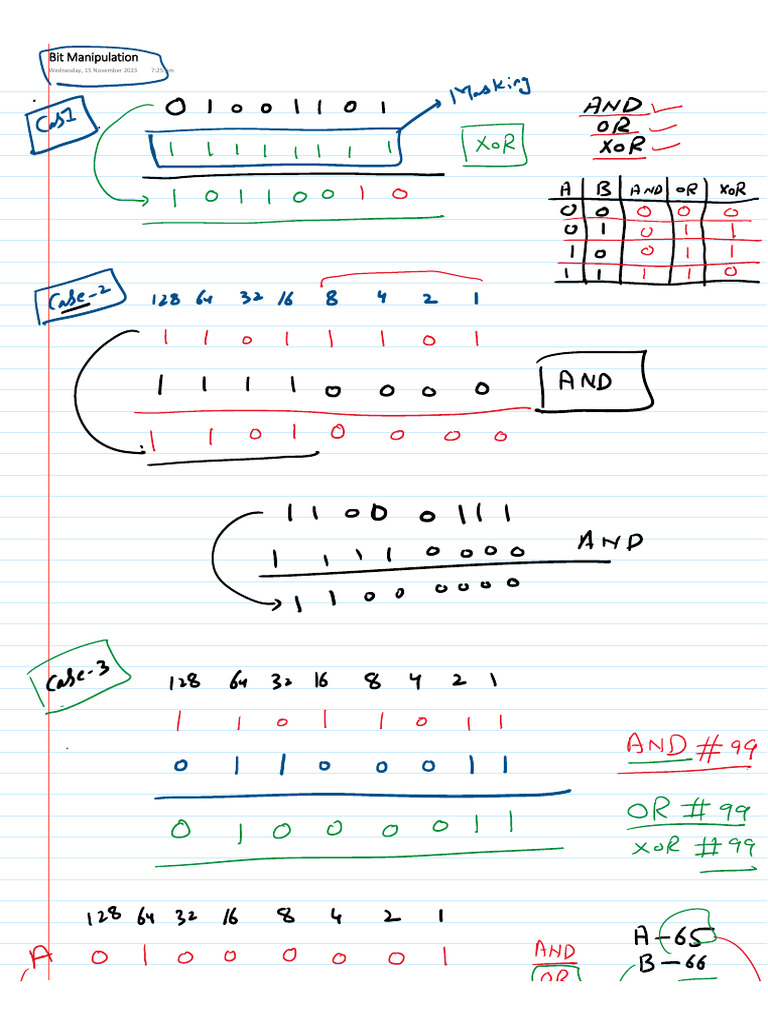 Bit Manipulation
Wednesday, 15 November 2023 7:25 pm
Cas1
0 1 0 0 1 1 0 1
Masking
1 1 1 1 1 1 1 1
XOR
1 0 1 1 0 0 1 0
AND
OR
XOR
A B AND OR XOR
0 0 0 0 0
0 1 0 1 1
1 0 0 1 1
1 1 1 1 0
Case-2
128 64 32 16 8 4 2 1
1 1 0 1 1 1 0 1
1 1 1 1 0 0 0 0
AND
1 1 0 1 0 0 0 0
1 1 0 0 0 1 1 1
1 1 1 1 0 0 0 0
AND
1 1 0 0 0 0 0 0
Case-3
128 64 32 16 8 4 2 1
1 1 0 1 1 0 1 1
0 1 1 0 0 0 1 1
0 1 0 0 0 0 1 1
AND # 99
OR # 99
XOR # 99
128 64 32 16 8 4 2 1
A 0 1 0 0 0 0 0 1
AND
OR
A - 65
B - 66